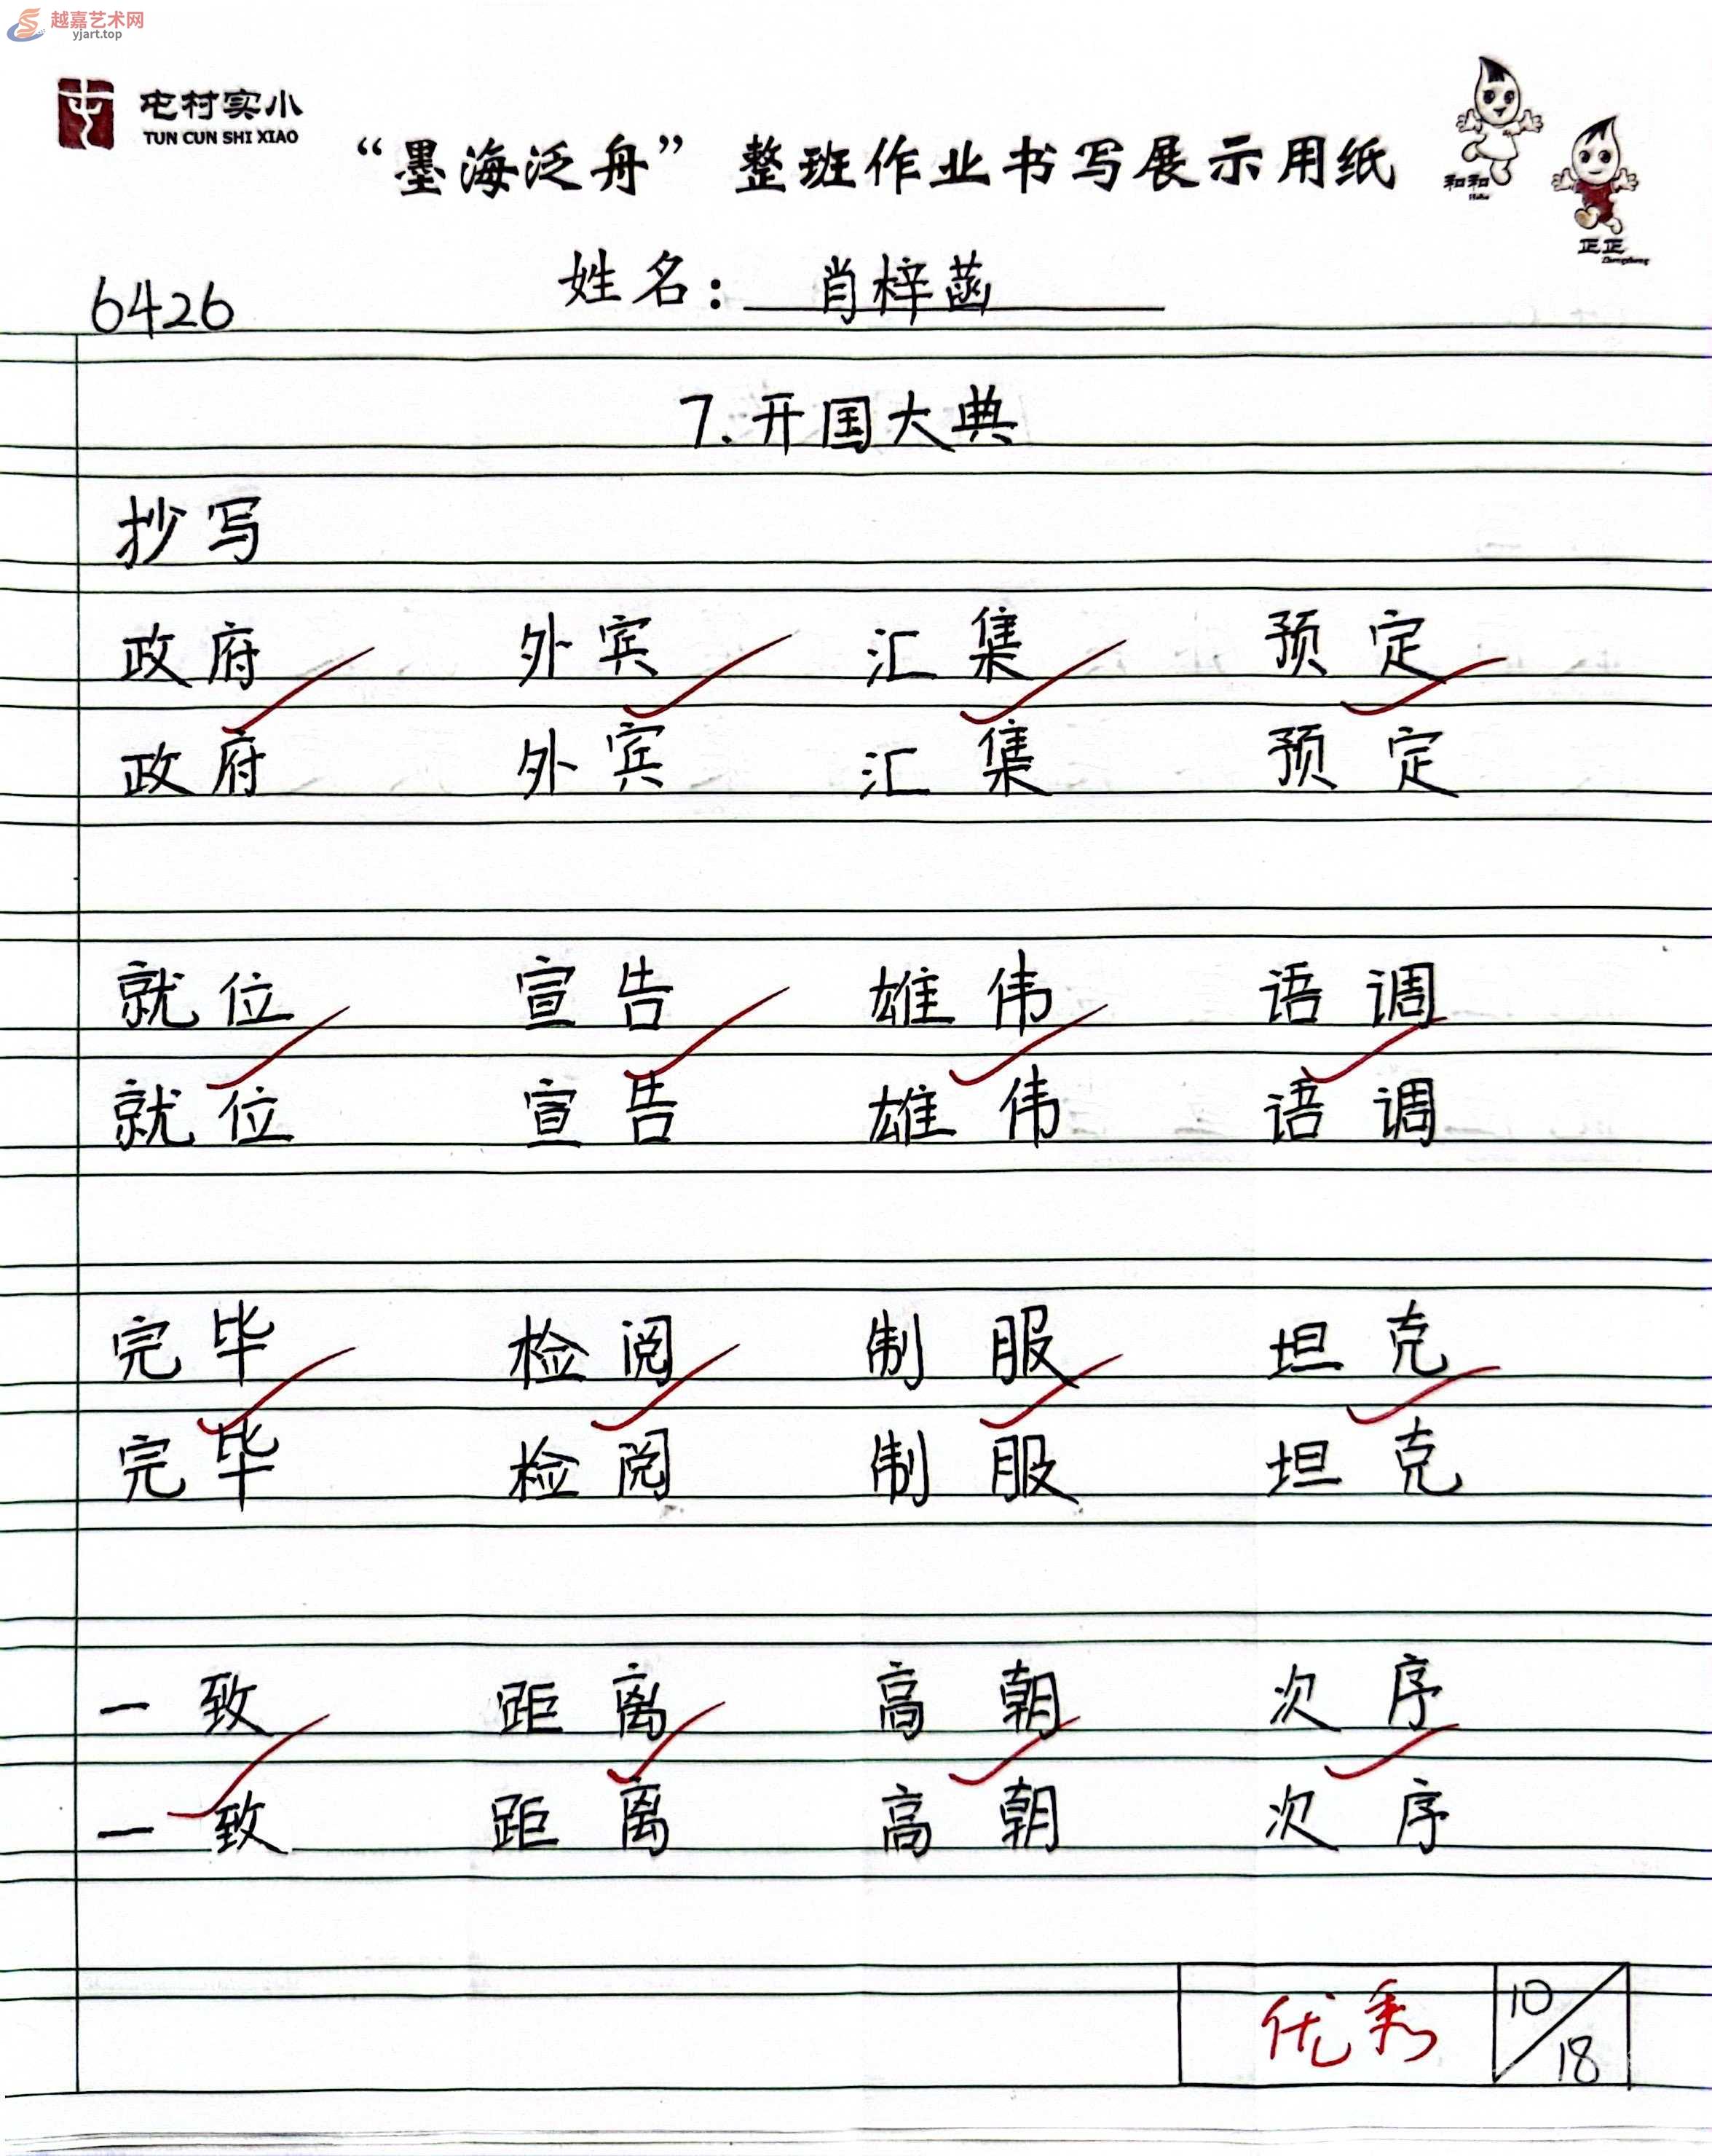 越嘉艺术网
yjart.top
屯村实小
TUN CUN SHI XIAO
“墨海泛舟” 整班作业书写展示用纸
和和
Hehe
正正
Zhengzheng
6426
姓名：肖梓菡
7.开国大典
抄写
政府 外宾 汇集 预定
政府 外宾 汇集 预定
就位 宣告 雄伟 语调
就位 宣告 雄伟 语调
完毕 检阅 制服 坦克
完毕 检阅 制服 坦克
一致 距离 高朝 次序
一致 距离 高朝 次序
优秀 10/18